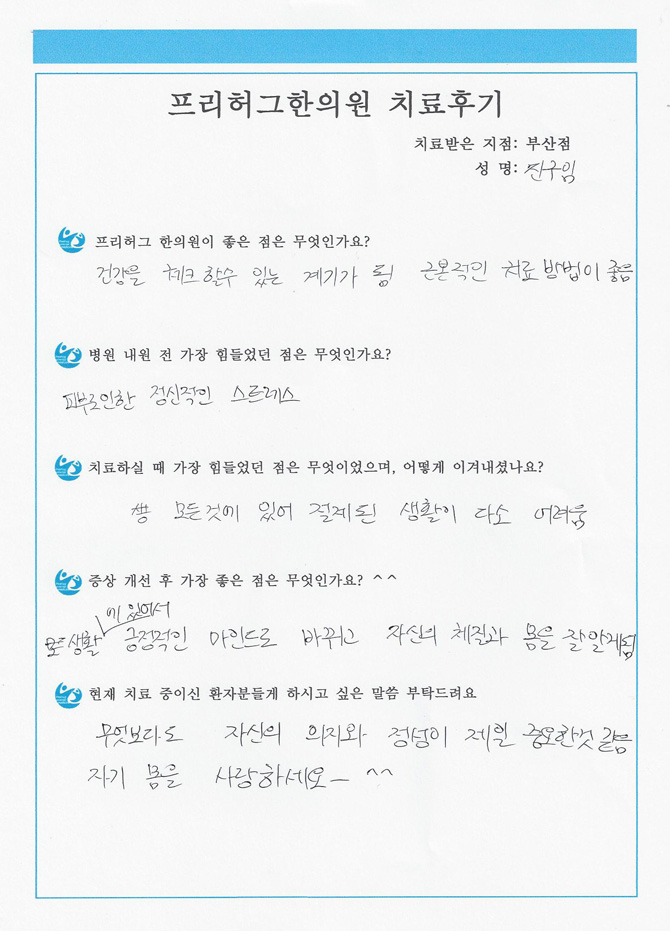 프리허그한의원 치료후기
치료받은 지점: 부산점
성 명: 진구임
프리허그 한의원이 좋은 점은 무엇인가요?
건강을 체크할수 있는 계기가 됨 근본적인 치료방법이 좋음
병원 내원 전 가장 힘들었던 점은 무엇인가요?
피부로인한 정신적인 스트레스
치료하실 때 가장 힘들었던 점은 무엇이었으며, 어떻게 이겨내셨나요?
모든것에 있어 절제된 생활이 다소 어려움
증상 개선 후 가장 좋은 점은 무엇인가요? ^^
에 있어서
모든생활 긍정적인 마인드로 바뀌고 자신의 체질과 몸을 잘알게됨
현재 치료 중이신 환자분들게 하시고 싶은 말씀 부탁드려요
무엇보다도 자신의 의지와 정성이 제일 중요한것 같음
자기 몸을 사랑하세요— ^^